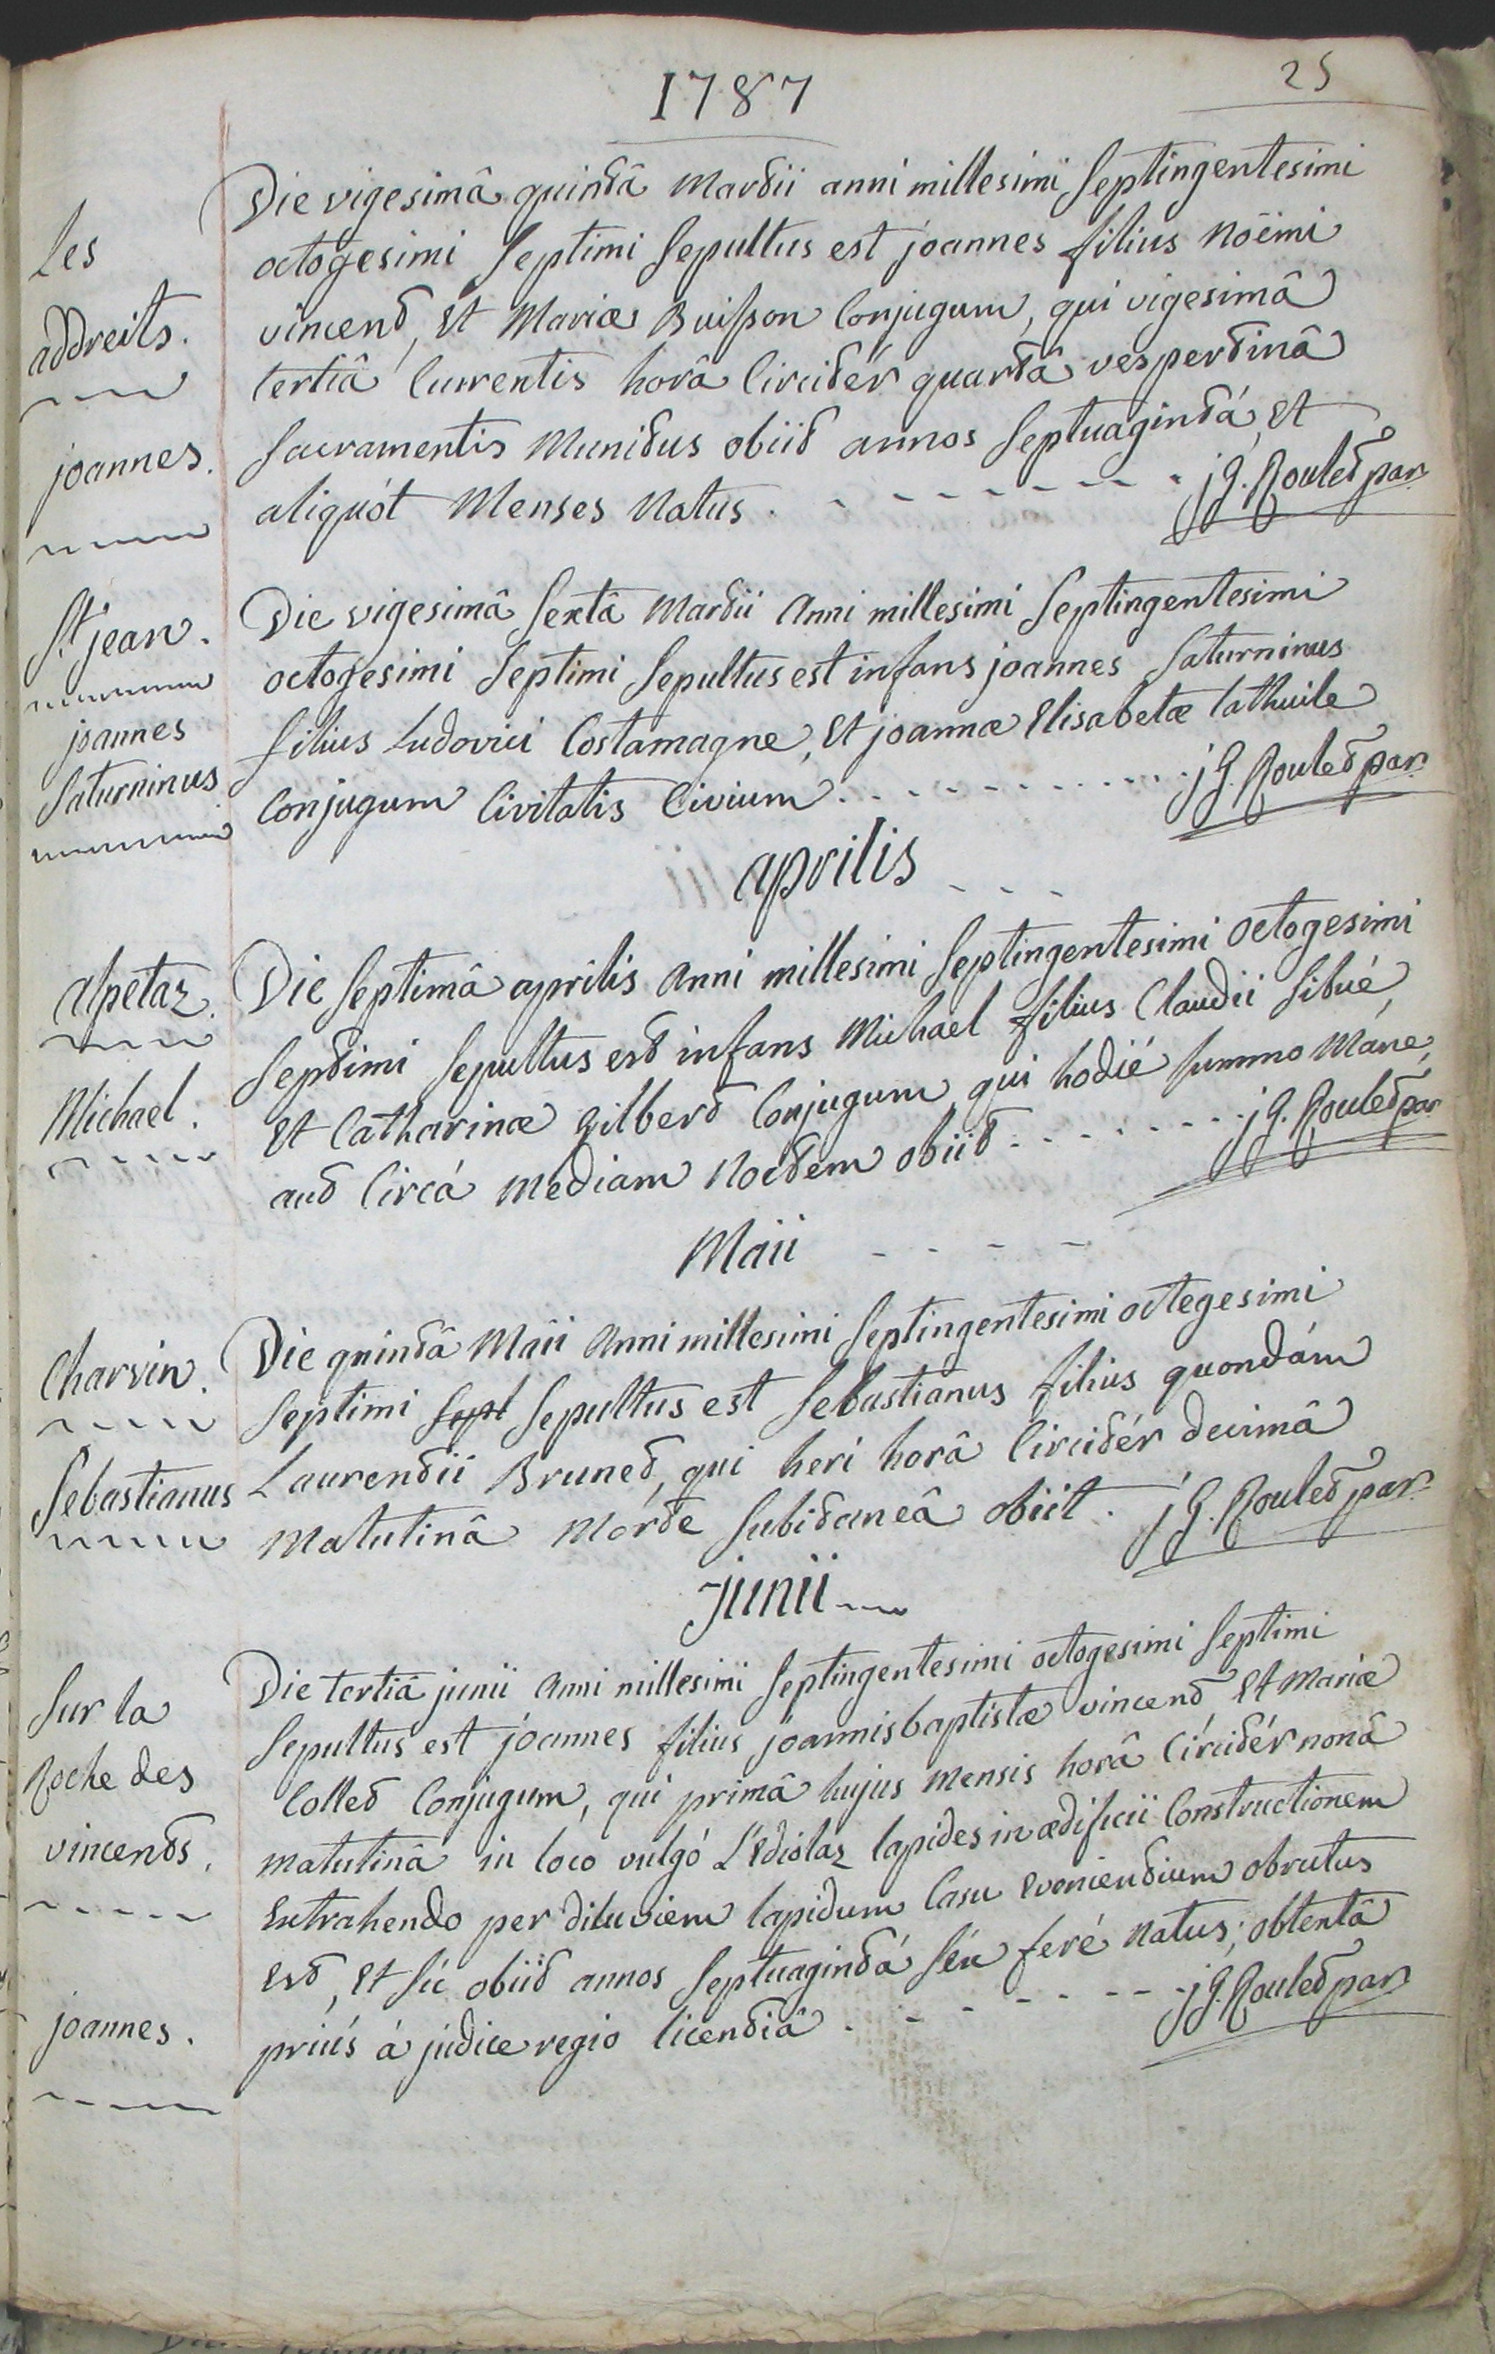 25
1787
Les
addreits.
joannes.
Die vigesimâ quintâ Martii anni millesimi Septingentesimi
octogesimi Septimi Sepultus est joannes filius Noëmi
vincent, Et Mariæ Buisson Conjugum, qui vigesimâ
tertiâ Currentis horâ Circitér quartâ vespertinâ
Sacramentis Munitus obiit annos Septuagintá, Et
aliquót Menses Natus. j G. Roulet par
St jean.
joannes
Saturninus
Die vigesimâ Sextâ Martii Anni millesimi Septingentesimi
octogesimi Septimi Sepultus est infans joannes Saturninus
filius Ludovici Costamagne, Et joannæ Elisabetæ Lathuile
Conjugum Civitatis Civium. j G. Roulet par
aprilis
alpetaz.
Michael.
Die Septimâ aprilis Anni millesimi Septingentesimi octogesimi
Septimi Sepultus est infans Michael filius Claudii Sibué,
Et Catharinæ Gilbert Conjugum qui hodié Summo Máne,
aut Circá Mediam Noctem obiit. j G. Roulet par
Maii
Charvin.
Sebastianus
Die quintâ Maii Anni millesimi Septingentesimi octegesimi
Septimi Sept Sepultus est Sebastianus filius quondám
Laurentii Brunet, qui heri horâ Circitér decimâ
Matutinâ Mórte Subitaneâ obiit. j G. Roulet par
junii
Sur la
Roche des
vincents.
joannes.
Die tertiâ junii Anni millesimi Septingentesimi octogesimi Septimi
Sepultus est joannes filius joannisbaptistæ vincent Et Mariæ
Collet Conjugum, qui primâ hujus Mensis horâ Circitér nonâ
matutinâ in loco vulgó L'Etiolaz lapides in ædificii Constructionem
Extrahendo per diluviem lapidum Casu Evenientium obrutus
Est, Et Sic obiit annos Septuagintá Séu feré Natus; obtentâ
priús á judice regio licentiâ. j G. Roulet par